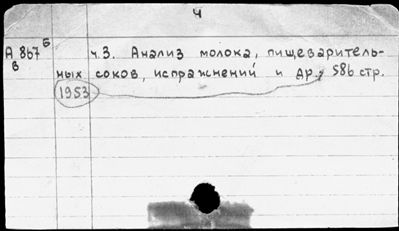 4
А 867 Б
В
ч.3. Анализ молока, пищеваритель-
ных соков, испражнений и др., 586 стр.
1953